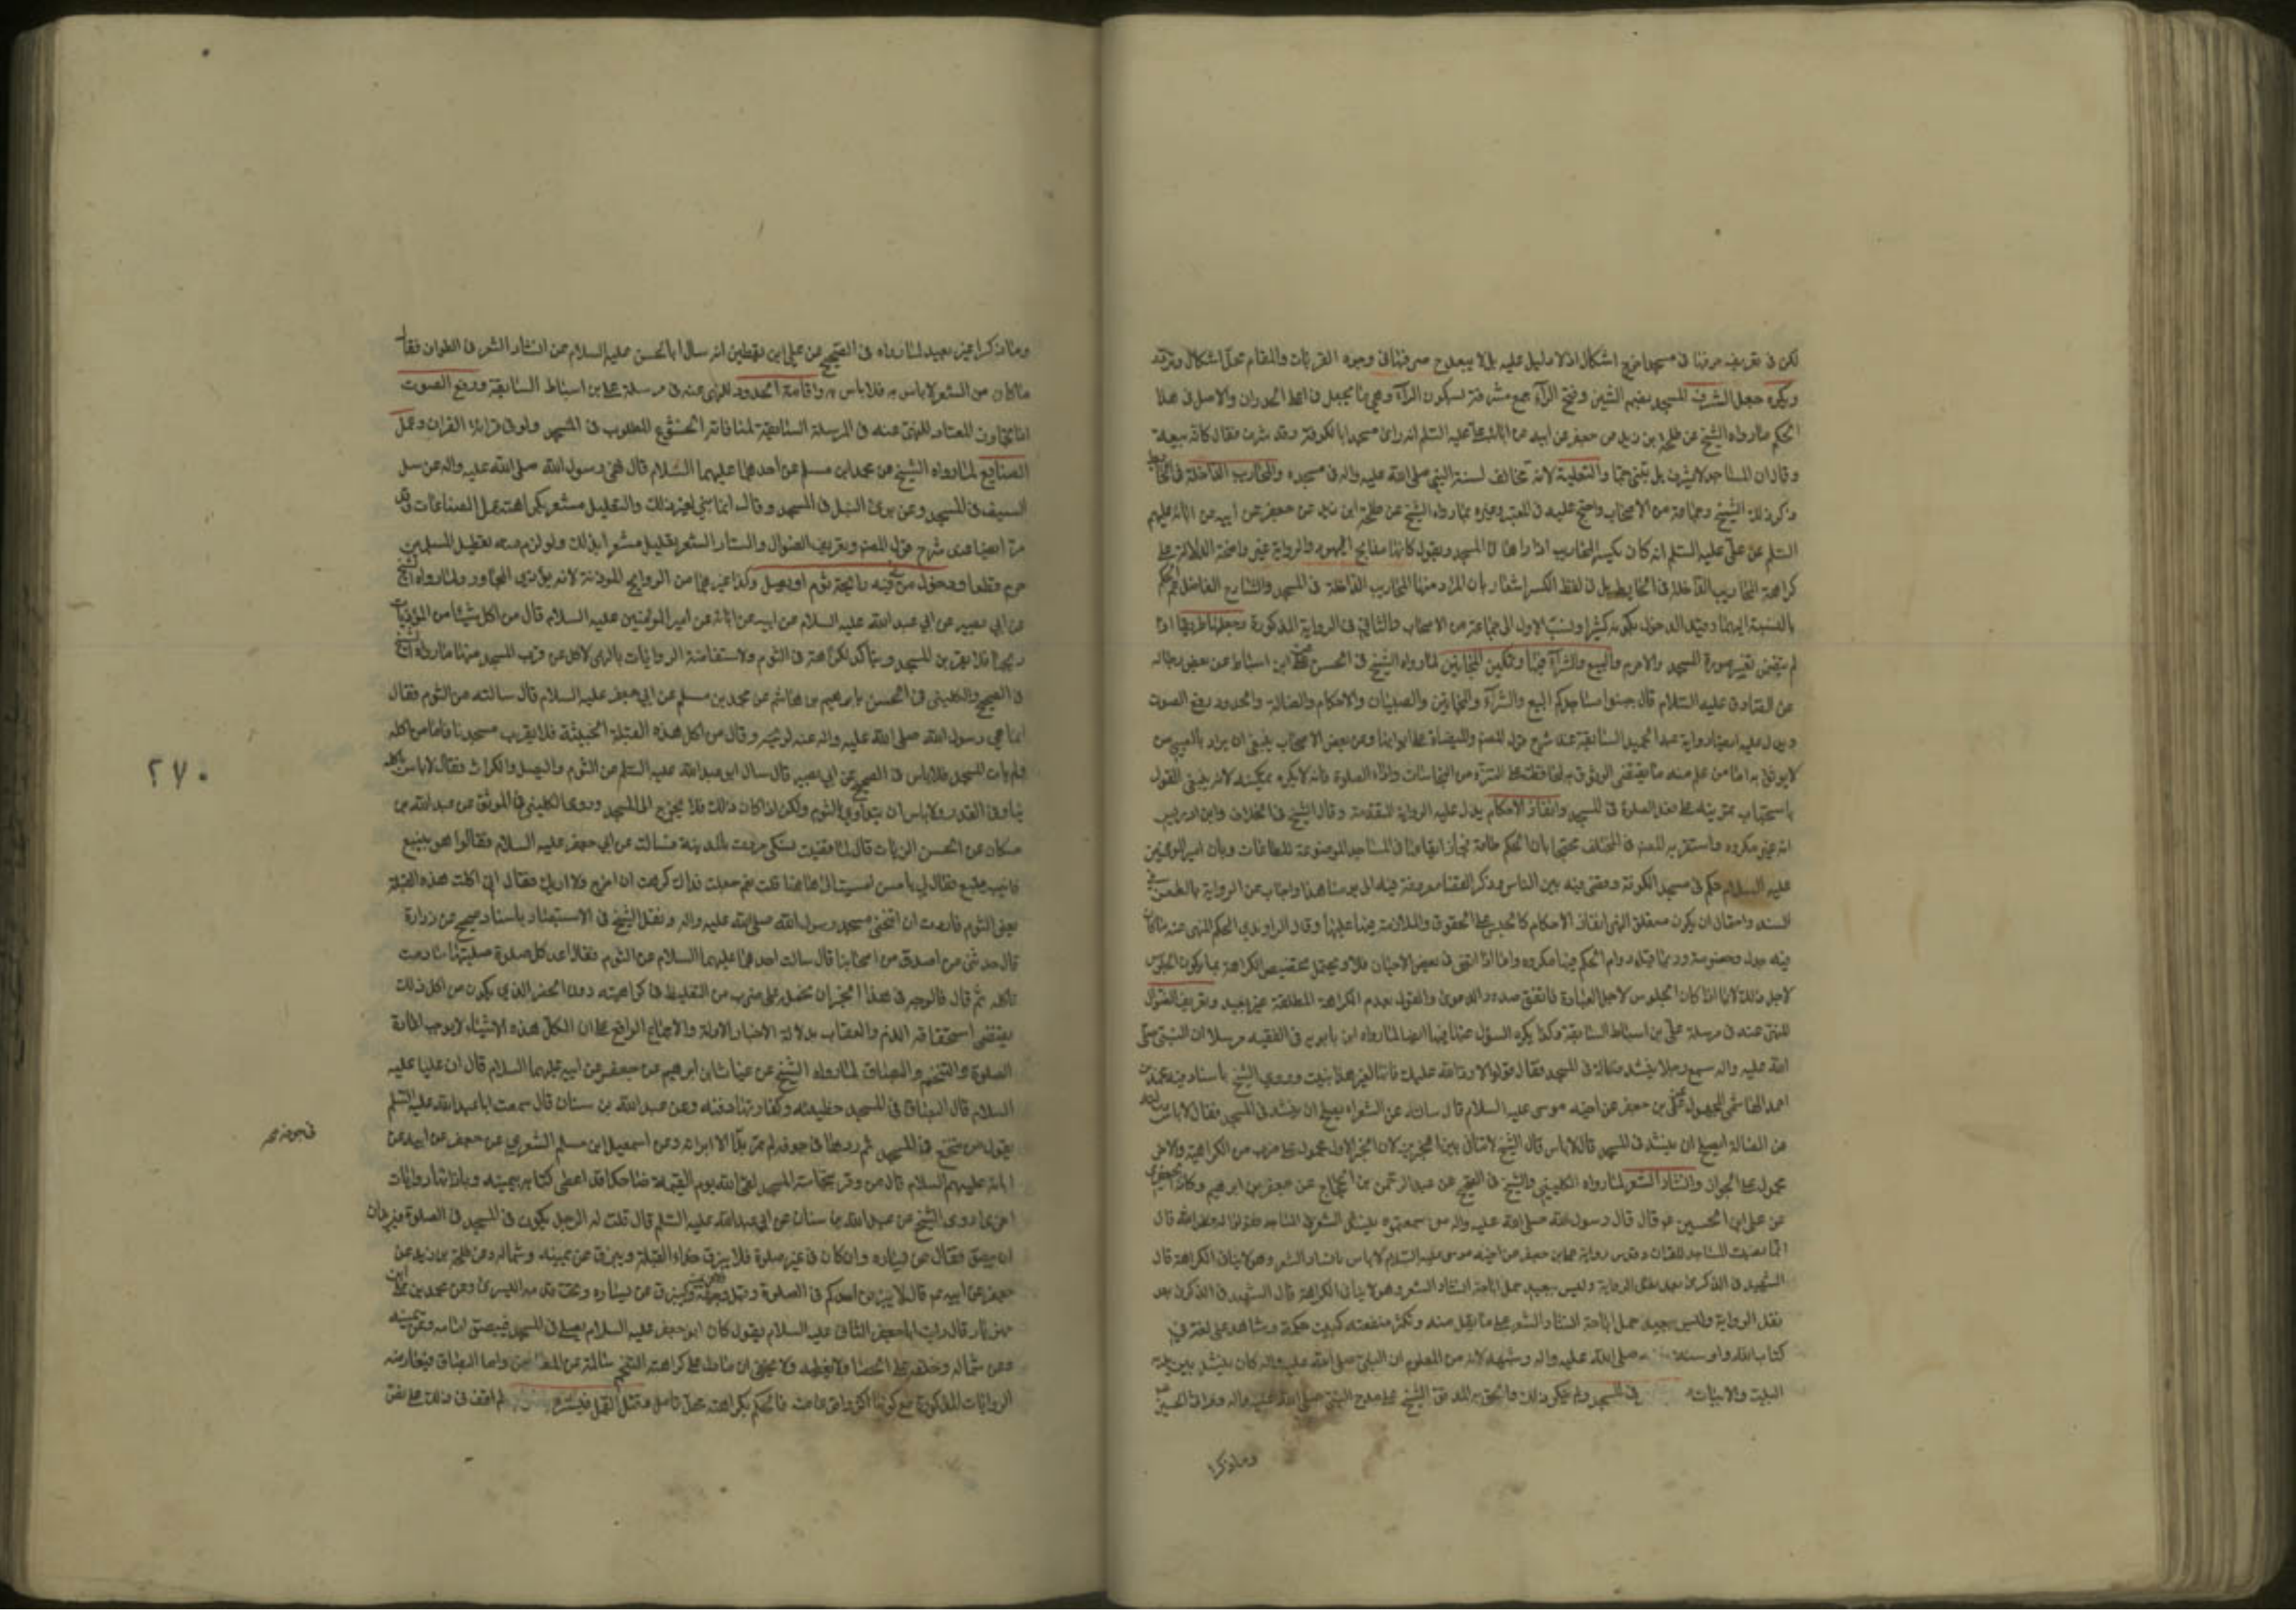 لكن في تعريف صرفها في مسجد اخر اشكال اذ لا دليل عليه بل لا يبعد صرفها في وجوه القربات والمقام محل اشكال
ويكره جعل الشرف للمسجد بضم الشين وفتح الراء جمع شرفة بسكون الراء وهي ما يجعل في اعلى الجدران والاصل في هذا
الحكم ما رواه الشيخ عن طلحة بن زيد عن جعفر عن ابيه عن علي عليه السلم انه راى مسجدا بالكوفة وقد شرف فقال كانه بيعة
وقال ان المساجد لا تشرف بل تبنى جما والتعلية لانه مخالف لسنة النبي صلى الله عليه واله في مسجده والمحاريب الداخلة في الحائط
ذكر ذلك الشيخ وجماعة من الاصحاب واحتج عليه في المعتبر وغيره بما رواه الشيخ عن طلحة ابن زيد عن جعفر عن ابيه عن
السلم عن علي عليه السلم انه كان يكسر المحاريب اذا راها في المسجد ويقول كانها مذابح اليهود والرواية غير واضحة الدلالة على
كراهة المحاريب الداخلة في الحايط بل في لفظ الكسر اشعار بان المراد منها المحاريب الداخلة في المسجد والشارح الفاضل عمم الحكم
بالنسبة اليهما وقيد الدخول بكونه كثيرا ونسب الاول الى جماعة من الاصحاب والثاني في الرواية المذكورة وجعلها طريقا اذا
لم يقتض تغيير صورة المسجد والا حرم والبيع والشراء فيها وتمكين المجانين لما رواه الشيخ في الحسن عن علي ابن اسباط عن بعض رجاله
عن الصادق عليه السلام قال جنبوا مساجدكم البيع والشراء والمجانين والصبيان والاحكام والضالة والحدود ورفع الصوت
ويدل عليه ايضا رواية عبد الحميد السابقة عند شرح قول المصنف والميضاة على ابوابها وعن بعض الاصحاب ينبغي ان يراد بالصبي من
لا يوثق به اما من علم منه ما يقتضي الوثوق به لمحافظته على التنزه من النجاسات واداء الصلوة فانه لا يكره تمكينه لانه ينبغي القول
باستحباب تمرينه على فعل الصلوة في المسجد وانفاذ الاحكام يدل عليه الرواية المتقدمة وقال الشيخ في الخلاف وابن ادريس
انه غير مكروه واستقر به المصنف في المختلف محتجا بان الحكم طاعة فجاز ايقاعها في المساجد الموضوعة للطاعات وبان امير المؤمنين
عليه السلام حكم في مسجد الكوفة وقضى فيه بين الناس ودكة القضا معروفة فيه الى يومنا هذا واجاب عن الرواية بالطعن في
السند واحتمال ان يكون متعلق النهي انفاذ الاحكام كالحبس على الحقوق والملازمة فيها عليها وقال الراوندي الحكم المنهي عنه ما كان
فيه جدل وخصومة وربما قيل دوام الحكم فيها مكروه واما اذا اتفق في بعض الاحيان فلا ويحتمل تخصيص الكراهة بما يكون الجلوس
لاجل ذلك لا اذا كان الجلوس لاجل العبادة فاتفق صدور الدعوى والقول بعدم الكراهة المطلقة غير بعيد وتعريف الضوال
للنهي عنه في مرسلة علي بن اسباط السابقة وكذا يكره السؤال عنها فيها ايضا لما رواه ابن بابويه في الفقيه مرسلا ان النبي صلى
الله عليه واله سمع رجلا ينشد ضالة في المسجد فقال قولوا لا رد الله عليك فانها لغير هذا بنيت وروى الشيخ باسناد فيه محمد بن
احمد الهاشمي المجهول عن علي بن جعفر عن اخيه موسى عليه السلام قال سالته عن الشعر ايصلح ان ينشد في المسجد فقال لا باس وسالته
عن الضالة ايصلح ان ينشد في المسجد قال لا باس قال الشيخ لا تنافي بين الخبرين لان الخبر الاول محمول على ضرب من الكراهية والاخر
محمول على الجواز وانشاد الشعر لما رواه الكليني والشيخ في الصحيح عن عبد الرحمن بن الحجاج عن جعفر بن ابرهيم
عن علي ابن الحسين ع قال قال رسول الله صلى الله عليه واله من سمعتموه ينشد الشعر في المساجد فقولوا له فض الله فاك
انما نصبت المساجد للقران وفي رواية علي بن جعفر عن اخيه موسى عليه السلام لا باس بانشاد الشعر وهو لا ينافي الكراهة قال
الشهيد في الذكرى بعد نقل الرواية وليس ببعيد حمل اباحة انشاد الشعر وهو لا ينافي الكراهة قال الشهيد في الذكرى بعد
نقل الرواية وليس ببعيد حمل اباحة انشاد الشعر على ما يقل منه وتكثر منفعته كبيت حكمة وشاهد على لغة في
كتاب الله او سنة صلى الله عليه واله وشبهه لانه من المعلوم ان النبي صلى الله عليه واله كان ينشد بين يديه
البيت والابيات في المسجد ولم ينكر ذلك والحق به المدقق الشيخ علي مدح النبي صلى الله عليه واله ومراثي الحسين
وما ذكرا
وما ذكرا غير بعيد لما رواه في الصحيح عن علي ابن يقطين انه سال ابا الحسن عليه السلام عن انشاد الشعر في الطواف فقال
ما كان من الشعر لا باس به فلا باس به واقامة الحدود للنهي عنه في مرسلة علي بن اسباط السابقة ورفع الصوت
المعتاد للنهي عنه في المرسلة السابقة لمنافاته الخشوع المطلوب في المسجد ولو في قراءة القران وعمل
الصنايع لما رواه الشيخ عن محمد ابن مسلم عن احدهما عليهما السلام قال نهى رسول الله صلى الله عليه واله عن سل
السيف في المسجد وعن بري النبل في المسجد وقال انما بني لغير ذلك والتعليل مشعر بكراهة عمل الصناعات
شرح قول المصنف وتعريف الضوال وانشاد الشعر تعليل مشعر بذلك ولو لزم منه تعطيل المسلمين
حرم قطعا ودخول من في فيه رائحة ثوم او بصل وكذا غيرهما من الروايح الموذية لانه يؤذي المجاور ولما رواه الشيخ
عن ابي بصير عن ابي عبد الله عليه السلام عن ابيه عن ابائه عن امير المومنين عليه السلام قال من اكل شيئا من المؤذيات
ريحها فلا يقربن المسجد ويتاكد الكراهة في الثوم ولاستفاضة الروايات بالنهي لاكله عن قرب المسجد منها ما رواه الشيخ
في الصحيح والكليني في الحسن بابرهيم بن هاشم عن محمد بن مسلم عن ابي جعفر عليه السلام قال سالته عن الثوم فقال
انما نهى رسول الله صلى الله عليه واله عنه لريحه وقال من اكل هذه البقلة الخبيثة فلا يقرب مسجدنا فاما من اكله
ولم يات المسجد فلا باس وفي الصحيح عن ابي بصير قال سال ابو عبد الله عليه السلم عن الثوم والبصل والكراث فقال لا باس باكله
نيا وفي القدر ولا باس ان يتداوى بالثوم ولكن اذا كان ذلك فلا يخرج الى المسجد وروى الكليني في الموثق عن عبد الله بن
مسكان عن الحسن الزيات قال لما قضيت نسكي مررت بالمدينة فسالت عن ابي جعفر عليه السلام فقالوا هو بينبع
فاتيت ينبع فقال لي يا حسن اتيتني الى هاهنا قلت نعم جعلت فداك كرهت ان اخرج ولا اراك فقال اني اكلت هذه البقلة
يعني الثوم فاردت ان اتنحى مسجد رسول الله صلى الله عليه واله ونقل الشيخ في الاستبصار باسناد صحيح عن زرارة
قال حدثني من اصدق من اصحابنا قال سالت احدهما عليهما السلام عن الثوم فقال اعد كل صلوة صليتها ما دمت
تاكله ثم قال فالوجه في هذا الخبر ان نحمله على ضرب من التغليظ في كراهيته دون الحظر الذي يكون من اكل ذلك
يقتضي استحقاقه الذم والعقاب بدلالة الاخبار الاولة والاجماع الواقع على ان اكل هذه الاشياء لا يوجب اعادة
الصلوة والتنخم والبصاق لما رواه الشيخ عن غياث ابن ابرهيم عن جعفر عن ابيه عليهما السلام قال ان عليا عليه
السلام قال البصاق في المسجد خطيئة وكفارته دفنه وعن عبد الله بن سنان قال سمعت ابا عبد الله عليه السلم
يقول من تنخع في المسجد ثم ردها في جوفه لم تمر بداء الا ابراته وعن اسمعيل ابن مسلم الشعيري عن جعفر عن ابيه عن
ابائه عليهم السلام قال من وقر بنخامته المسجد لقي الله يوم القيمة ضاحكا قد اعطي كتابه بيمينه وبازائها روايات
اخرى روى الشيخ عن عبد الله بن سنان عن ابي عبد الله عليه السلم قال قلت له الرجل يكون في المسجد في الصلوة فيريد ان
يبصق فقال عن يساره وان كان في غير صلوة فلا يبزق حذاء القبلة ويبزق عن يمينه وشماله وعن طلحة بن زيد عن
جعفر عن ابيه ع قال لا يبزقن احدكم في الصلوة قبل وجهه وليبزق عن يساره وتحت قدمه اليسرى وعن محمد بن علي ابن
مهزيار قال رايت ابا جعفر الثاني عليه السلام يقول كان ابو جعفر عليه السلام يصلي في المسجد فيبصق امامه وعن يمينه
وعن شماله وخلفه على الحصا ولا يغطيه ولا يخفى ان ما دل على كراهة التنخم سالمة عن المعارض واما البصاق فيعارضه
الروايات المذكورة مع كونها اكثر فالحكم بكراهته محل تامل وقتل القمل فيستره لم اقف في ذلك على نص
٢٧٠
في جوفه